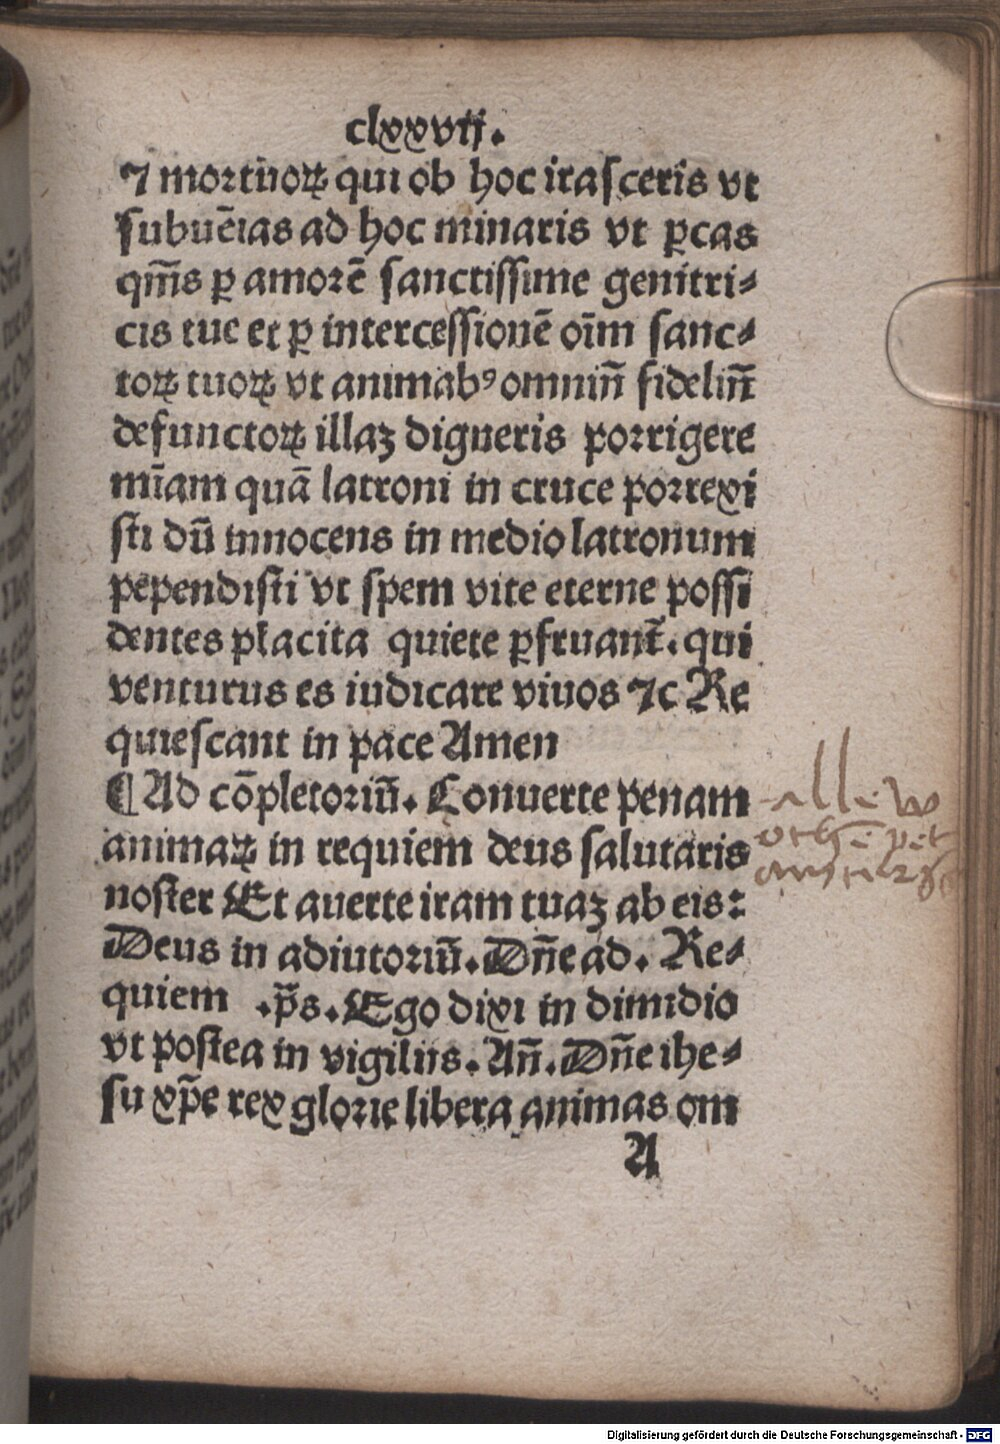 clxxvij.
⁊ mortuoꝝ qui ob hoc irasceris vt
subuēias ad hoc minaris vt ꝑcas
qm̄s ꝑ amorē sanctissime genitri⸗
cis tue et ꝑ intercessionē oīm sanc⸗
toꝝ tuoꝝ vt animabꝰ omniū̄ fideliū̄
defunctoꝝ illaꝫ digneris porrigere
mīam quā latroni in cruce porrexi
sti dū innocens in medio latronum
pependisti vt spem vite eterne possi
dentes placita quiete ꝑfruant̄. qui
venturus es iudicare viuos ⁊c Re
quiescant in pace Amen
¶ Ad cōpletoriū. Conuerte penam
animaꝝ in requiem deus salutaris
noster Et auerte iram tuaꝫ ab eis:
Deus in adiutoriū. Dn̄e ad. Re⸗
quiem .p̄s. Ego dixi in dimidio
vt postea in vigiliis. An̄. Dn̄e ihe⸗
su xp̄e rex glorie libera animas om
A
Digitalisierung gefördert durch die Deutsche Forschungsgemeinschaft - DFG